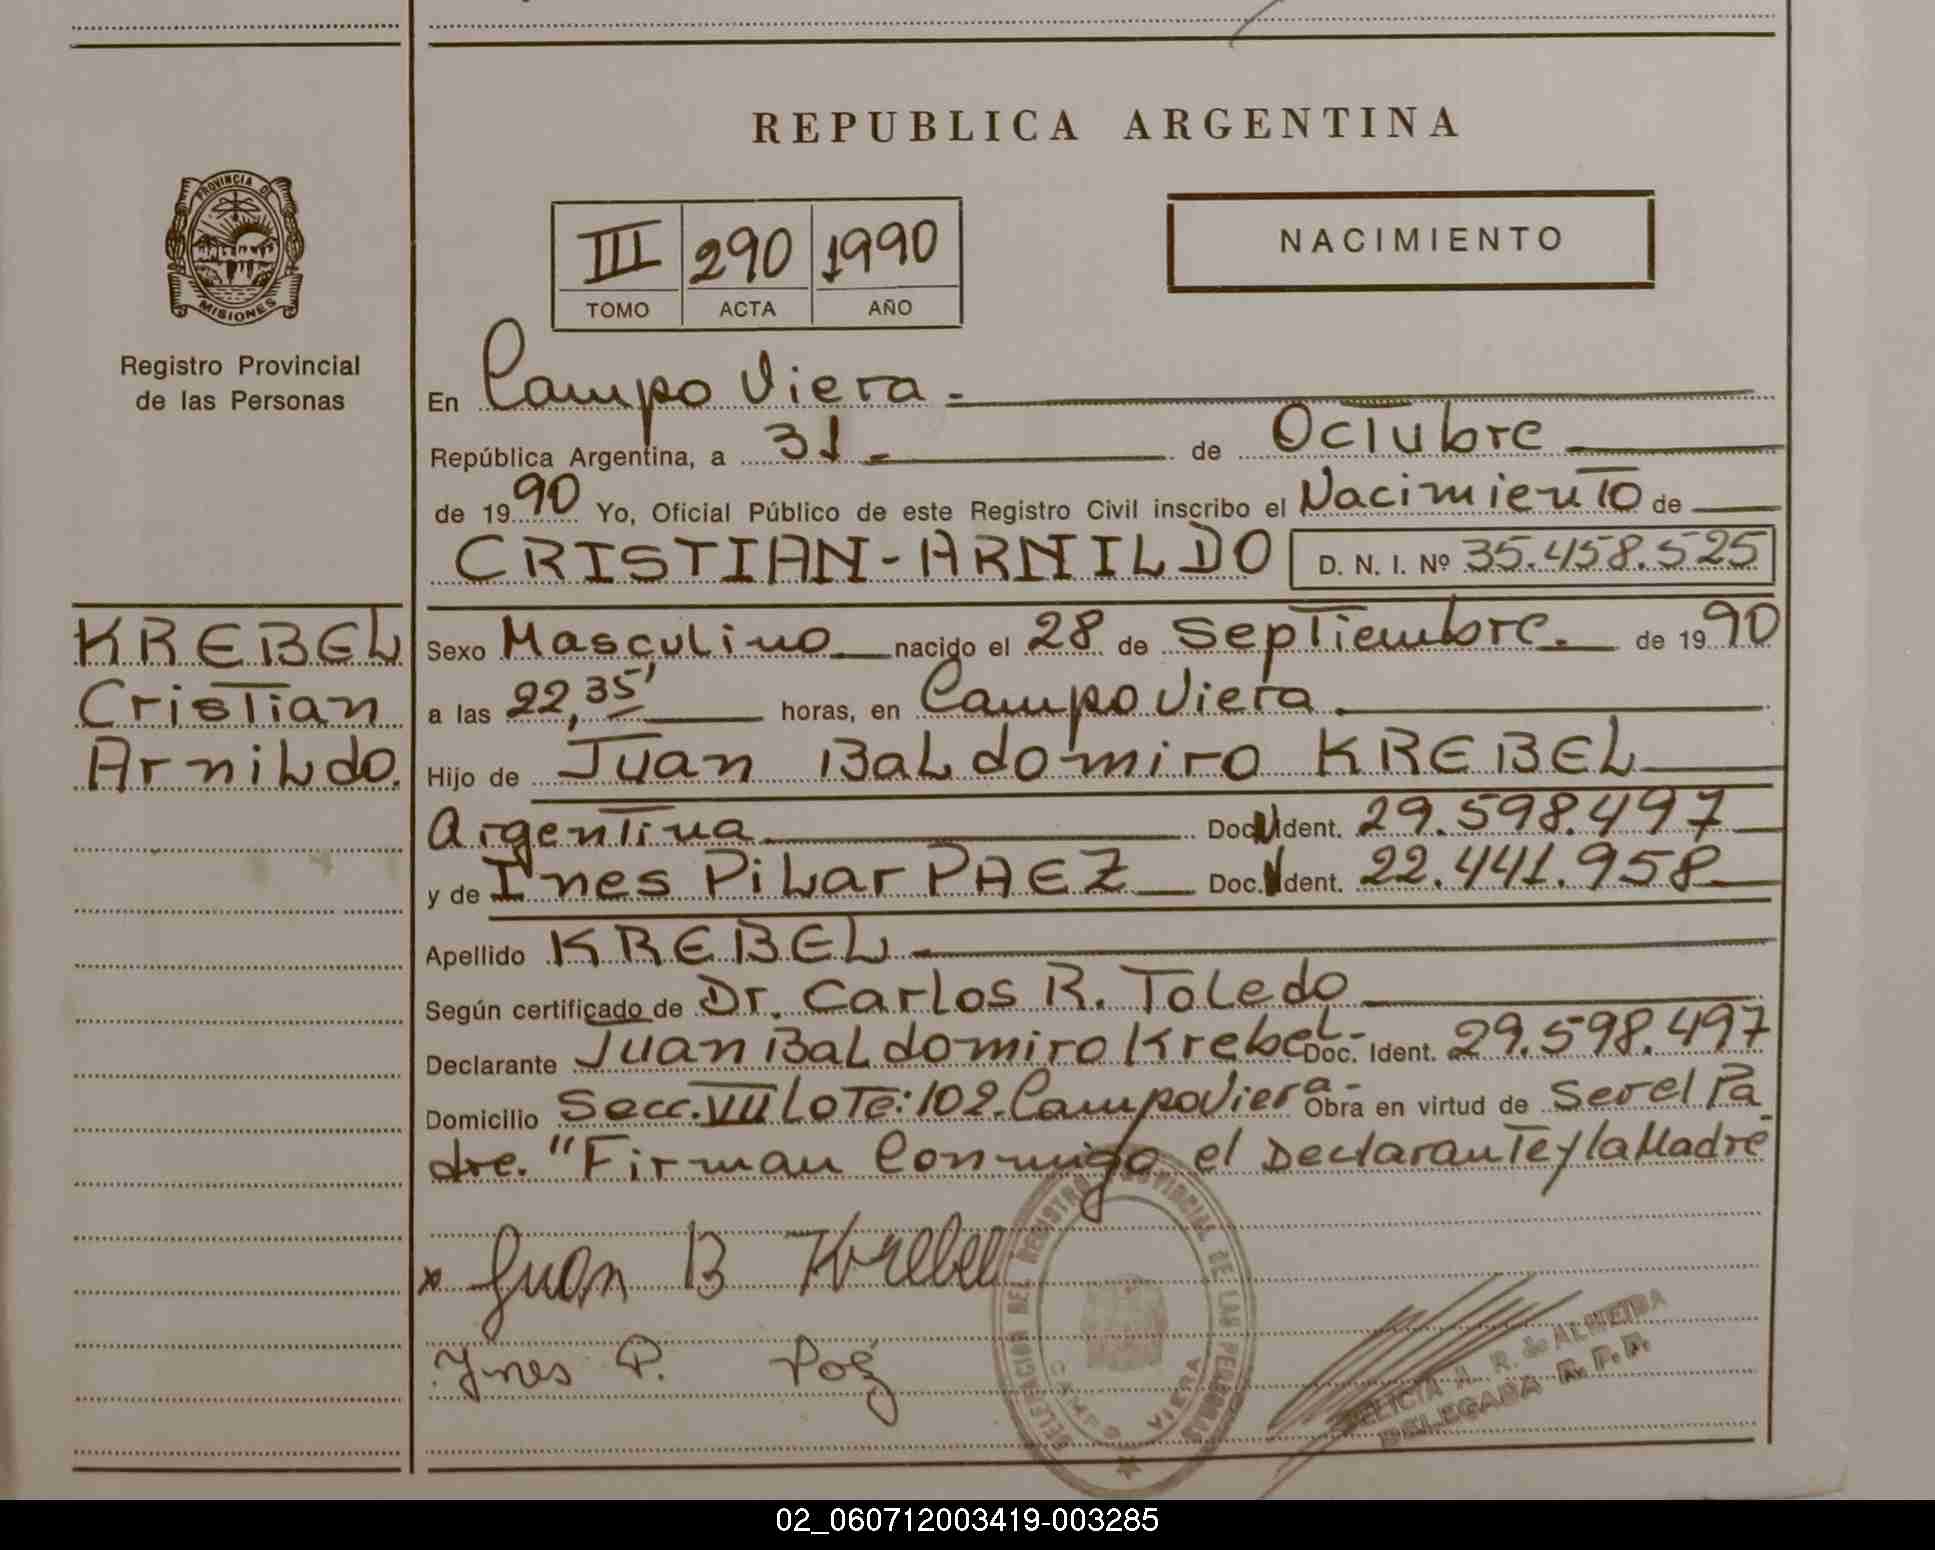 REPUBLICA ARGENTINA
PROVINCIA DE MISIONES
Registro Provincial
de las Personas
III 290 1990
TOMO ACTA AÑO
NACIMIENTO
En Campo Viera.-
República Argentina, a 31.- de Octubre
de 1990 Yo, Oficial Público de este Registro Civil inscribo el Nacimiento de
CRISTIAN-ARNILDO D. N. I. Nº 35.458.525
KREBEL
Cristian
Arnildo.
Sexo Masculino nacido el 28 de Septiembre. de 1990
a las 22,35' horas, en Campo Viera.
Hijo de Juan Baldomiro KREBEL
Argentina Doc. Ident. 29.598.497
y de Ines Pilar PAEZ Doc. Ident. 22.441.958
Apellido KREBEL.-
Según certificado de Dr. Carlos R. Toledo
Declarante Juan Baldomiro Krebel.- Doc. Ident. 29.598.497
Domicilio Secc. VII Lote: 102. Campo Viera- Obra en virtud de Ser el Pa
dre. "Firman Conmigo el Declarante y la Madre
x Juan B Krebel
Ynes P.
DELEGACION DEL REGISTRO PROVINCIAL DE LAS PERSONAS
CAMPO VIERA
FELICIA A. R. de ALMEIDA
DELEGADA R. P. P.
02_060712003419-003285